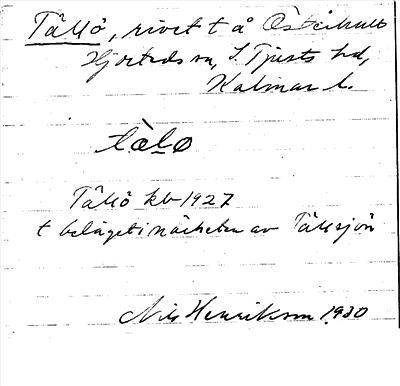 Tällö, rivet t å Östeihult
Hjorteds sn, S. Tjusts hd,
Kalmar l.
tælø
Tällö kb 1927
t beläget i närheten av Tällsjön
Nils Henriksson 1930